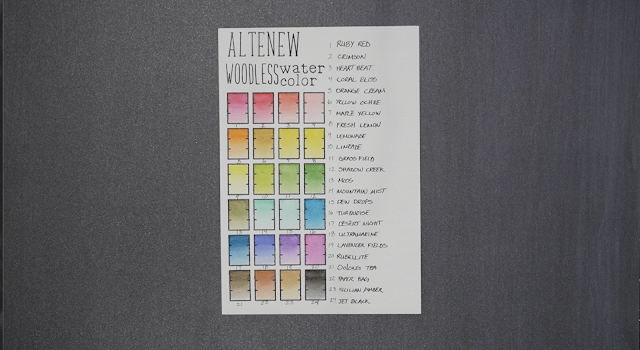 ALTENEW
WOODLESS water color
1 RUBY RED
2 CRIMSON
3 HEART BEAT
4 CORAL BLISS
5 ORANGE CREAM
6 YELLOW OCHRE
7 MAPLE YELLOW
8 FRESH LEMON
9 LEMONADE
10 LIMEADE
11 GRASS FIELD
12 SHADOW CREEK
13 MOSS
14 MOUNTAIN MIST
15 DEW DROPS
16 TURQUOISE
17 DESERT NIGHT
18 ULTRAMARINE
19 LAVENDER FIELDS
20 RUBELLITE
21 OOLONG TEA
22 PAPER BAG
23 SICILIAN AMBER
24 JET BLACK